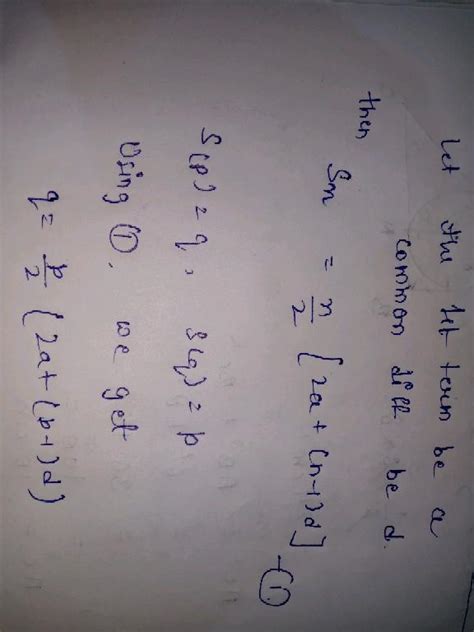 Let the 1st term be a
common diff be d.
then
Sn = n/2 [2a + (n-1)d] -①
S(p) = q, S(q) = p
Using ①, we get
q = p/2 (2a + (p-1)d)